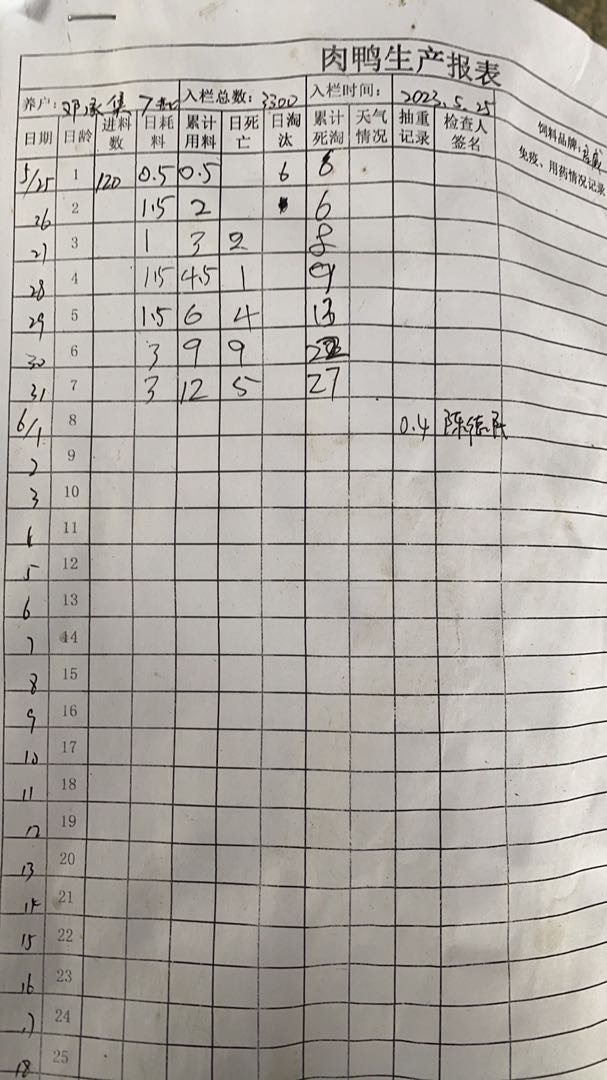 肉鸭生产报表
养户: 入栏总数: 3300 入栏时间: 2023.5.25 饲料品牌:
日期 日龄 进料数 日耗料 累计用料 日死亡 日淘汰 累计死淘 天气情况 抽重记录 检查人签名 免疫、用药情况记录
5/25 1 120 0.5 0.5 6 6
26 2 1.5 2 6
27 3 1 3 2 8
28 4 1.5 4.5 1 9
29 5 1.5 6 4 13
30 6 3 9 9 22
31 7 3 12 5 27
6/1 8 0.4
2 9
3 10
4 11
5 12
6 13
7 14
8 15
9 16
10 17
11 18
12 19
13 20
14 21
15 22
16 23
17 24
18 25